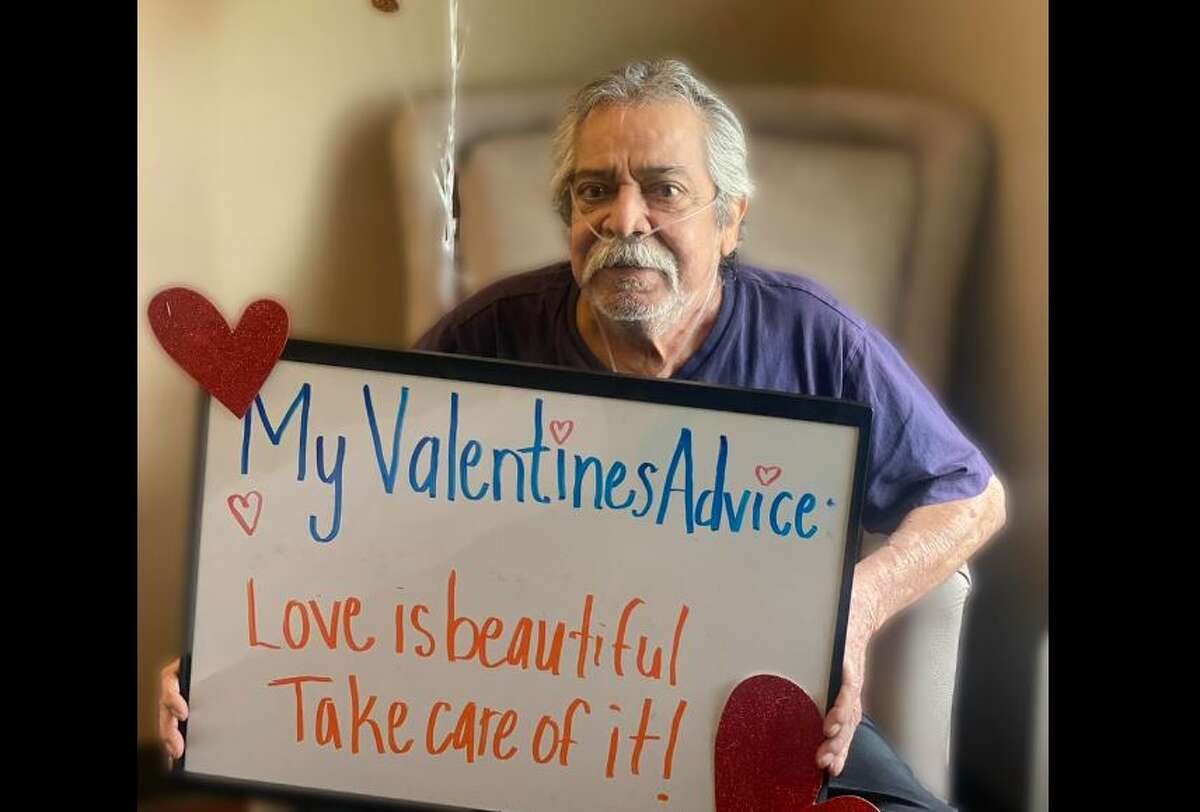 My Valentines Advice:
Love is beautiful
Take care of it!